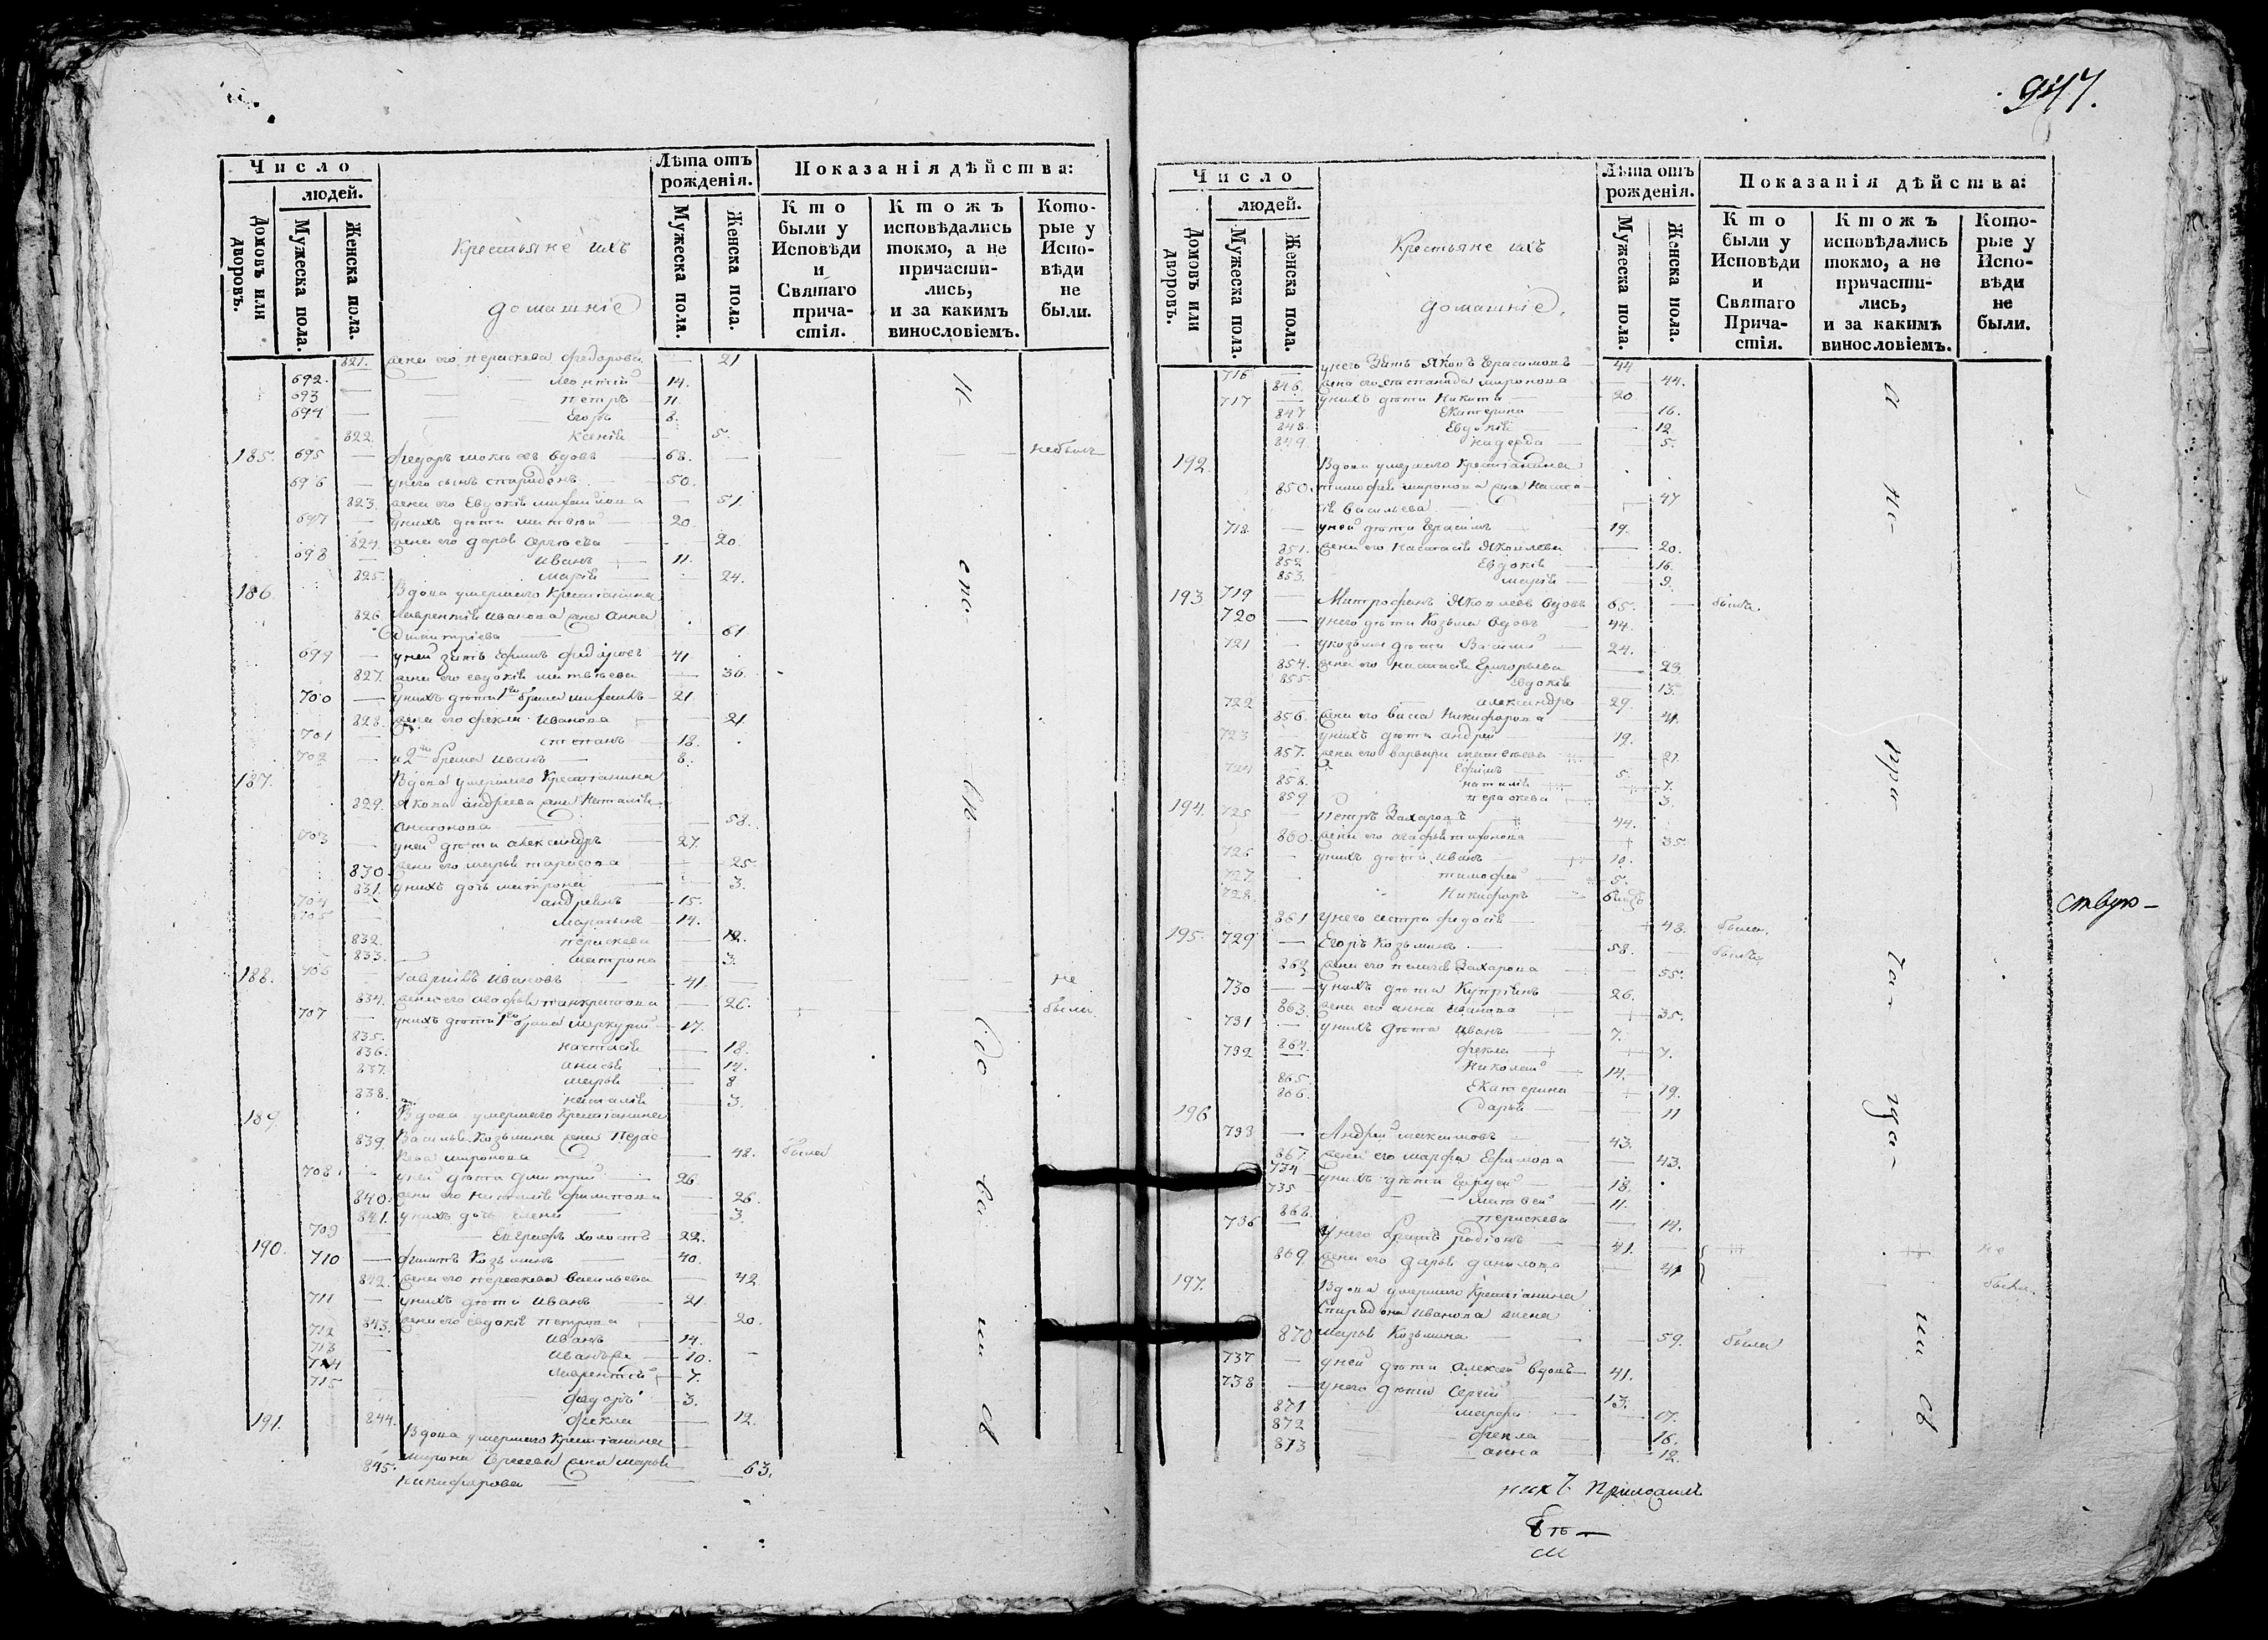 947.
Число
людей.
Домовъ или дворовъ.
Мужеска пола.
Женска пола.
Крестьяне ихъ
домашніе
Лѣта отъ рожденія.
Мужеска пола.
Женска пола.
Показанія дѣйства:
Кто были у Исповѣди и Святаго причастія.
Ктожъ исповѣдались токмо, а не причастились, и за какимъ винословіемъ.
Которые у Исповѣди не были.
821. жена его Перасковѣа Федорова 21
692. Леонтій 14.
693 Петръ 11
694 Егоръ 8.
822. Ксенія 5.
185. 695 Федоръ вдовъ 68. небылъ
696 у него сынъ Спиридонъ 50.
823. жена его Евдокія Михайлова 51.
697 у нихъ дѣти Матвей 20
824. жена его Дарья Сергѣева 20.
698 Иванъ 11.
825. Марія 24.
186. Вдова умершаго крестіанина
826. Лаврентія Иванова жена Анна
Димитріева 61
699 у ней зять Ефимъ Федоровъ 41
827. жена его Евдокія Матвѣева 36.
700 у нихъ дѣти 1го брака Михаилъ 21.
828. жена его Фекла Иванова 21
701 Степанъ 18.
702 2го брака Иванъ 8.
187. Вдова умершаго крестіанина
829. Якова Андреева жена Наталія
Антонова 58.
703 у ней дѣти Александръ 27.
830. жена его Марья Тарасова 25
831. у нихъ дочь Матрона 3.
704 Андреянъ 15.
705 Мартынъ 14.
832. Пераскева 12.
833. Матрона 3.
188. 706 Гавріилъ Ивановъ 41. не
834. жена его Агафья Панкратова 26. были.
707 у нихъ дѣти 1го брака Меркурій 17.
835.
836. Настасія 18.
837. Анисья 14.
Марья 8
838. Наталія 3.
189. Вдова умершаго крестіанина
839 Василья Козьмина жена Перас
кева Миронова 48. была
708 у ней дѣти Димитрій 26.
840. жена его Наталія Филипова 26.
841. у нихъ дочь Елена 3.
709 Евграфъ холостъ 22.
190. 710 Филипъ Козьминъ 40.
842. жена его Пераскева Васильева 42
711 у нихъ дѣти Иванъ 21
843. жена его Евдокія Петрова 20.
712 Иванъ 14.
713 Иванъ 10.
714 Лаврентій 7.
715 Федоръ 3.
844. Фекла 12.
191. Вдова умершаго крестіанина
845. Мирона жена Марья
Никифорова 63.
и спо вѣ до ва ли сь
Число
людей.
Домовъ или дворовъ.
Мужеска пола.
Женска пола.
Крестьяне ихъ
домашніе.
Лѣта отъ рожденія.
Мужеска пола.
Женска пола.
Показанія дѣйства:
Кто были у Исповѣди и Святаго Причастія.
Ктожъ исповѣдались токмо, а не причастились, и за какимъ винословіемъ.
Которые у Исповѣди не были.
716 у него зять Яковъ Герасимовъ 44
846. жена его Степанида Миронова 44.
717 у нихъ дѣти Никита 20
847 Екатерина 16.
848 Евдокія 12
849 Надежда 5.
192. Вдова умершаго крестіанина
850. Тимофея Миронова жена Наста
сія Васильева 47
718 у ней дѣти Герасимъ 19.
851. жена его Настасія Яковлева 20.
852 Евдокія 16.
853. Марія 9.
193 719 Митрофанъ Яковлевъ вдовъ 65. былъ
720 у него дѣти Козьма вдовъ 44.
721 у Козьмы дѣти Василій 24.
854. жена его Настасія Григорьева 23.
855 Евдокія 13.
722 Александръ 29.
856. жена его Васса Никифорова 41.
723 у нихъ дѣти Андрей 19.
857. жена его Варвара Матвѣева 21.
724 Ефимъ 5.
858. Наталія 7.
859 Пераскева 3.
194. 725 Петръ Захаровъ 44.
860. жена его Агафья Тихонова 35.
726 у нихъ дѣти Иванъ 10.
727 Тимофей 5.
728. Никифоръ
861 у него сестра Федосія 48. была.
195. 729 Егоръ Козьминъ 58. былъ
862 жена его Пелагея Захарова 55.
730 у нихъ дѣти Купріянъ 26.
863. жена его Анна Иванова 35.
731 у нихъ дѣти Иванъ 7.
732 864. Фекла 7.
Николай 14.
865. Екатерина 19.
866. Дарья 11
196 733 Андрей Максимовъ 43.
867. жена его Марфа Ефимова 43.
734 у нихъ дѣти 18.
735 Матвей 11.
868. Пераскева 14.
736 у него братъ Родіонъ 41. не
869. жена его Дарья Данилова 41 были.
197. Вдова умершаго крестіанина
Спиридона Иванова жена
870 Марья Козьмина 59. была
737 у ней дѣти Алексей вдовъ 41.
738 у него дѣти Сергей 13.
871 Марфа 17.
872 Фекла 16.
873 Анна 12.
а не при ча ща ли сь
ствую-